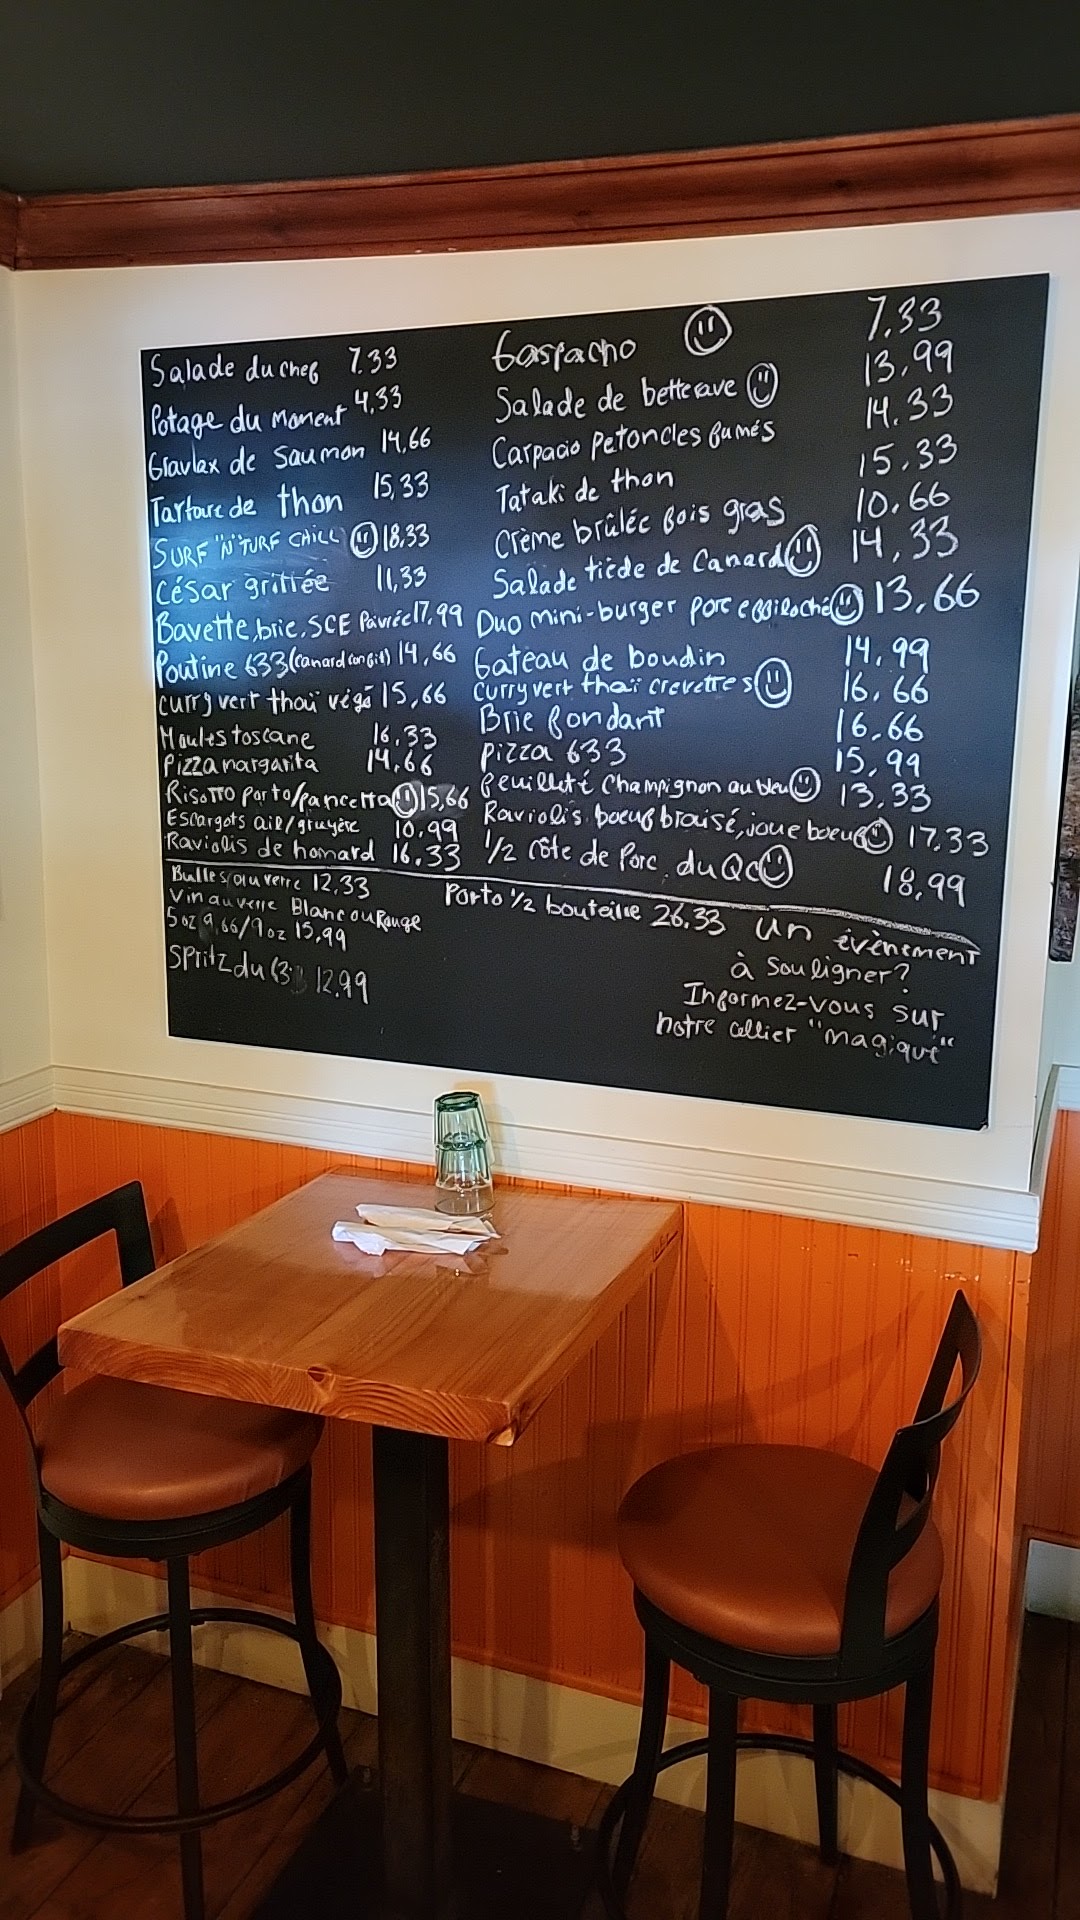 Salade du chef 7.33
Potage du Moment 4,33
Gravlax de Saumon 14,66
Tartare de thon 15,33
SURF "N" TURF CAILL 18,33
César grillée 11,33
Bavette, brie, SCE Poivrée 17,99
Poutine 633 (canard confit) 14,66
curry vert thaï végé 15,66
Moules toscane 16,33
Pizza margarita 14,66
Risotto porto/pancetta 15,66
Escargots ail/gruyère 10,99
Raviolis de homard 16,33
Gaspacho 7.33
Salade de betterave 13,99
Carpacio petoncles fumés 14.33
Tataki de thon 15.33
Crème brûlée fois gras 10.66
Salade tiède de Canard 14,33
Duo mini-burger porc effiloché 13,66
Gateau de boudin 14,99
Curry vert thaï crevettes 16,66
Brie fondant 16,66
Pizza 633 15,99
feuilleté Champignon au bleu 13,33
Raviolis boeuf braisé, joue boeuf 17,33
1/2 Côte de Porc du Qc 18,99
Bulles au verre 12,33
Vin au verre Blanc ou Rouge
5 oz 9,66/9 oz 15,99
Spritz du 12.99
Porto 1/2 bouteille 26.33
Un évènement
à souligner?
Informez-vous sur
notre cellier "magique"